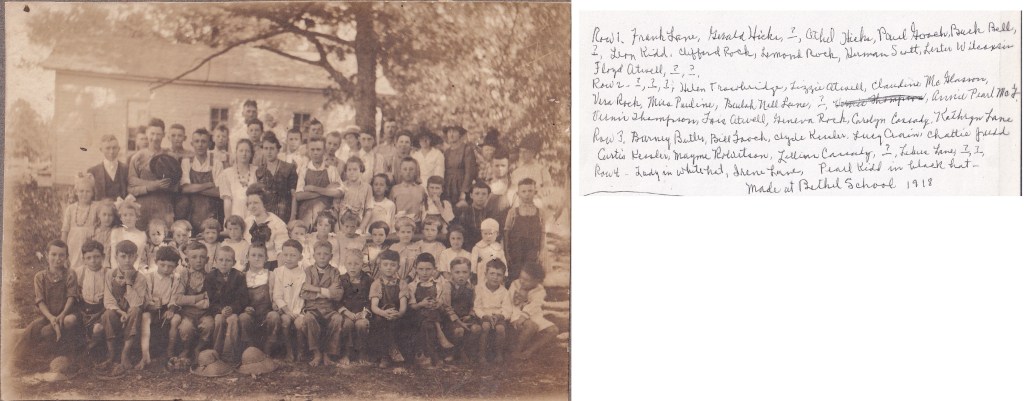 Row 1. Frank Lane, Gerald Hicks, ?, Othel Hicks, Paul Gooch, Buck Bell,
?, Leon Kidd. Clifford Rock, Lemond Rock, Herman Scott, Lester Wilcoxsin
Floyd Atwell, ?, ?.
Row 2 - ?, ?, ?, Helen Trowbridge, Lizzie Atwell, Claudine Mc Glasson,
Vera Rock, Miss Pauline, Beulah Nell Lane, ?, Annie Pearl Mc G.
Vernie Thompson, Lois Atwell, Geneva Rock, Carolyn Cassady, Kathryn Lane
Row 3. Barney Butler, Bill Gooch, Clyde Kessler. Lucy Chattie Judd
Curtis Kessler, Mayme Robertson, Lillian Cassady, ?, Lane, ?, ?,
Row 4 - Lady in white hat, Irene Pearl Kidd in black hat -
Made at Bethel School 1918